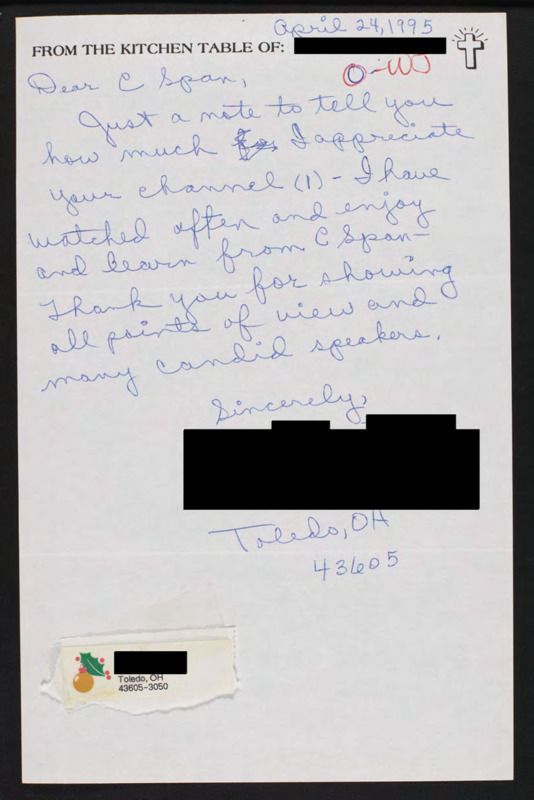 April 24, 1995
FROM THE KITCHEN TABLE OF:
O-WJ
Dear C Span,
Just a note to tell you
how much I appreciate
your channel (1) - I have
watched often and enjoy
and learn from C Span-
Thank you for showing
all points of view and
many candid speakers.
Sincerely,
Toledo, OH
43605
Toledo, OH
43605-3050